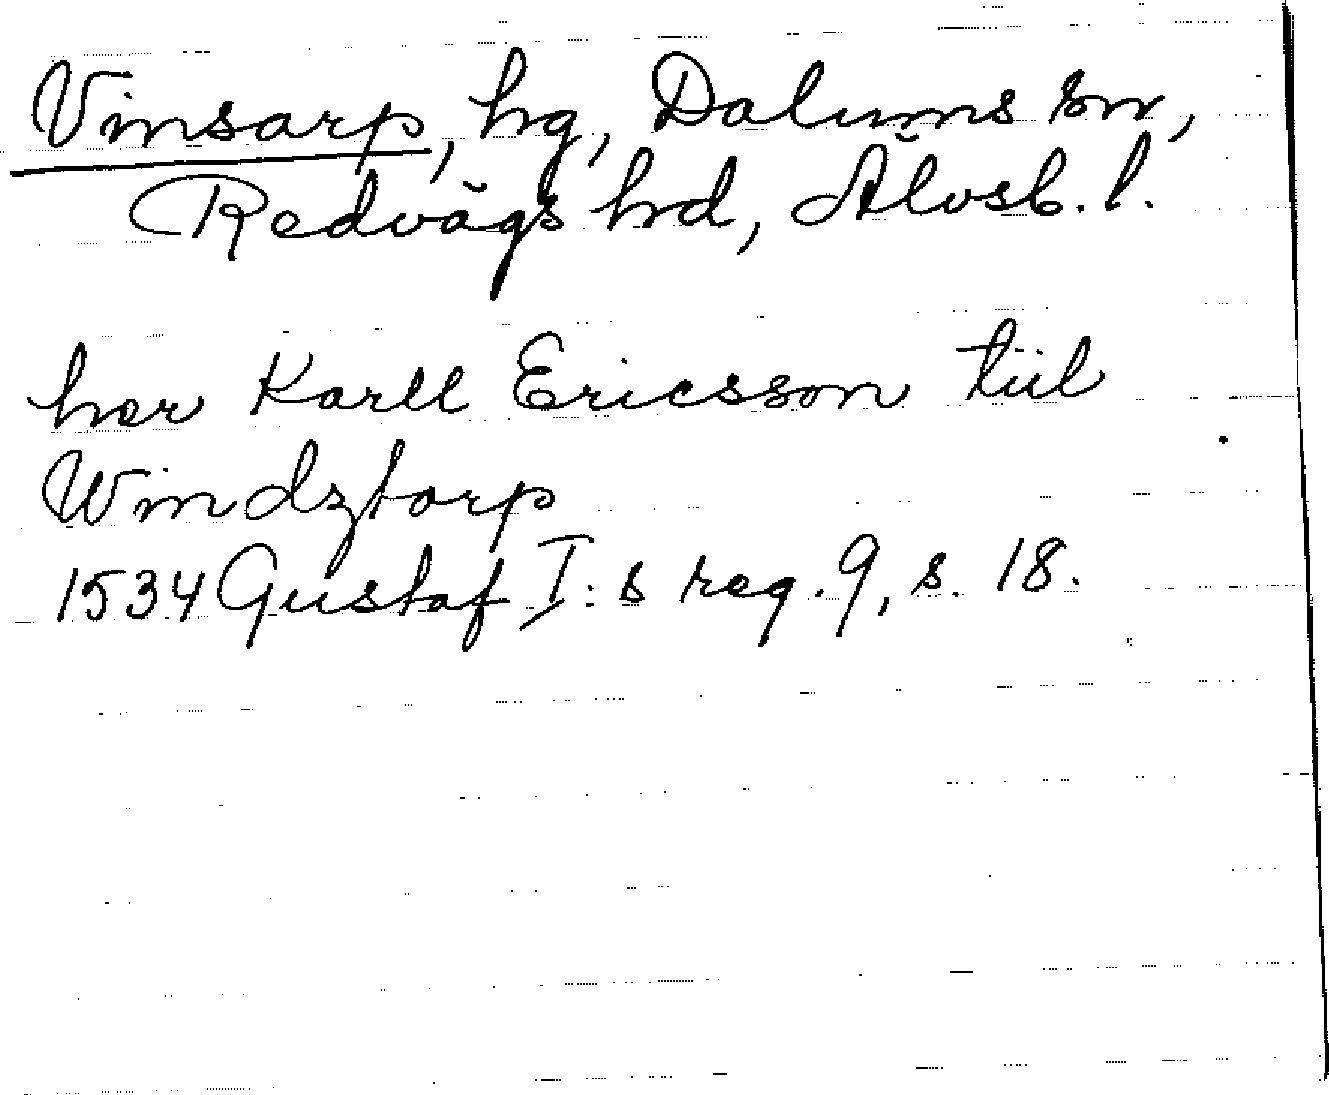 Vinsarp, hg, Dalums sn,
Redvägs hd, Älvsb. l.
her Karll Ericsson tiil
Windztorp
1534 Gustaf I:s reg. 9, s. 18.